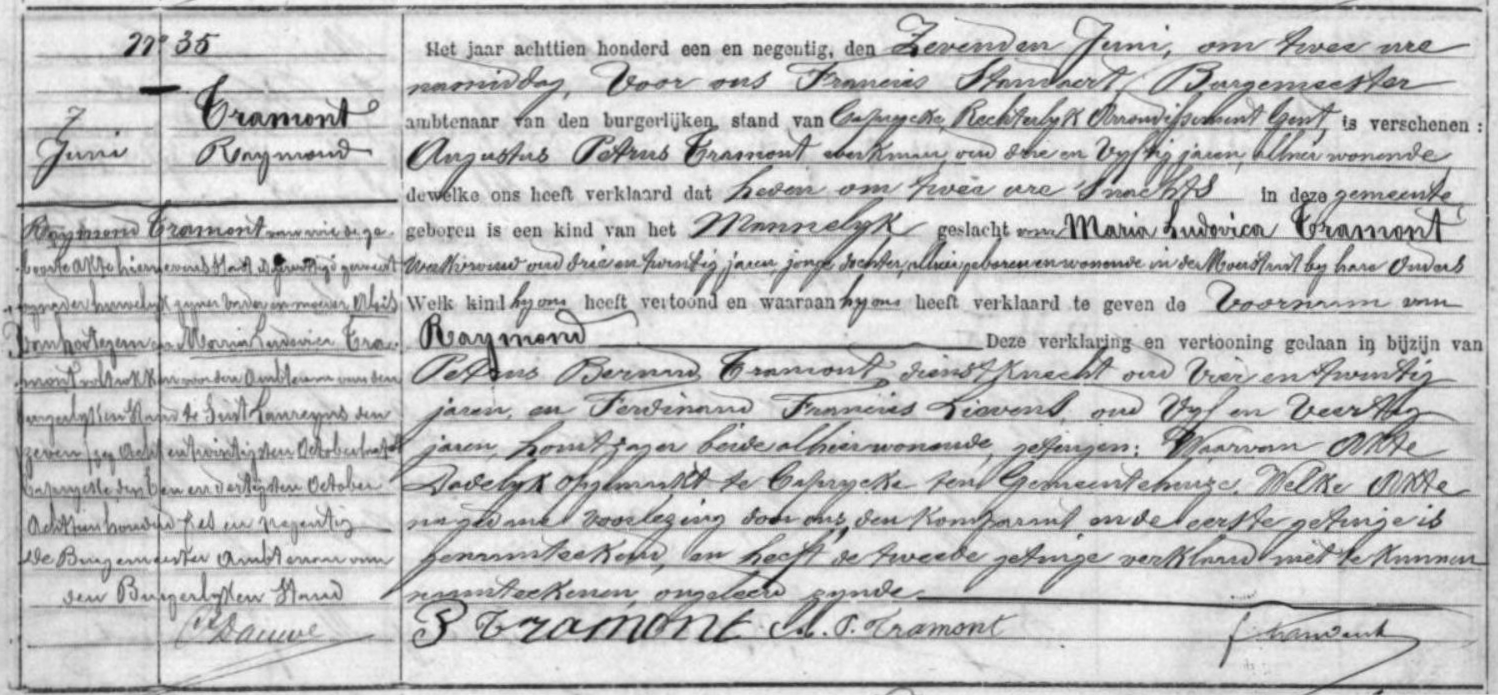 N° 35
7 Juni
Tramont
Raymond
Raymond Tramont van wie de ge-
boorte akte hiernevens staat is gewettigd geworden
by der huwelyk zyner vader en moeder Aloïs
Van hootegem en Maria Ludovica Tra-
mont voltrokken voor den Ambtenaar van den
burgerlyken Stand te Sint Laureyns den
zeven en twintigsten October
Caprycke den Een en dertigsten October
Achttien honderd zes en negentig
De Burgemeester Ambtenaar van
den Burgerlyken Stand
Dauwe
Het jaar achttien honderd een en negentig, den Zevenden Juni, om twee ure
namiddag, Voor ons Francies Standaert, Burgemeester
ambtenaar van den burgerlijken stand van Caprycke, Rechterlyk Arrondissement Gent, is verschenen :
Augustus Petrus Tramont werkman, oud drie en Vyftig jaren, alhier wonende
dewelke ons heeft verklaard dat heden om twee ure 's nachts in deze gemeente
geboren is een kind van het Mannelyk geslacht van Maria Ludovica Tramont
Werkvrouw oud drie en twintig jaren jonge dochter, alhier geboren en wonende in de by hare Ouders
Welk kind hy ons heeft vertoond en waaraan hy ons heeft verklaard te geven de Voornaam van
Raymond Deze verklaring en vertooning gedaan in bijzijn van
Petrus Bernard Tramont, dienstknecht oud Vier en twintig
jaren, en Ferdinand Francies Lievens, oud Vyf en Veertig
jaren, houtzager beide alhier wonende, getuigen; Waarvan Akte
Dadelyk opgemaakt te Caprycke ten Gemeentehuize. Welke Akte
na gedane voorlezing door ons, den Komparant en de eerste getuige is
genaamteekend, en heeft de tweede getuige verklaard niet te kunnen
naamteekenen, ongeleerd zynde
P Tramont A. P. Tramont F Standaert